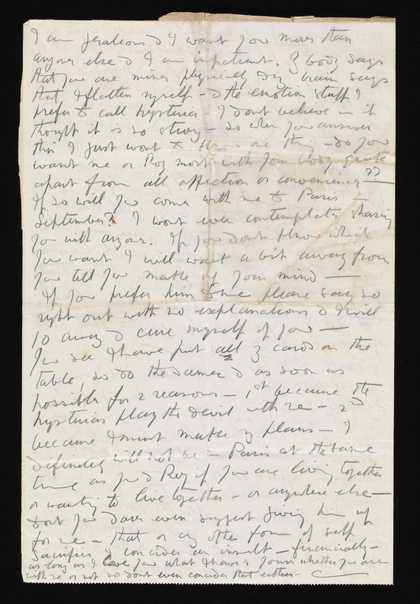 I am jealous & I want you more than
anyone else & I am impatient. My body says
that you are mine physically my brain says
that & flatters myself - & the emotion stuff I
prefer to call hysteria - I don't believe in it
though it is so strong - so when you answer
this I just want to know one thing - do you
want me or Roy most with your body quite
apart from all affection or convenience - ??
If so will you come with me to Paris in
September? I won't even contemplate sharing
you with anyone. If you don't know which
you want I will wait a bit away from
you till you make up your mind -
If you prefer him to me please say so
right out with no explanations & I will
go away & cure myself of you -
You see I have put all my cards on the
table, so do the same & as soon as
possible for 2 reasons - 1st because the
hysterias play the devil with me - 2nd
because I must make my plans - I
definitely will not be in Paris at the same
time as you & Roy if you are living together
or wanting to live together - or anywhere else -
& don't you dare even suggest giving him up
for me - that or any other form of self
sacrifice I consider an insult - financially -
as long as I have you what I have is yours whether you are
with me or not so don't even consider that either -